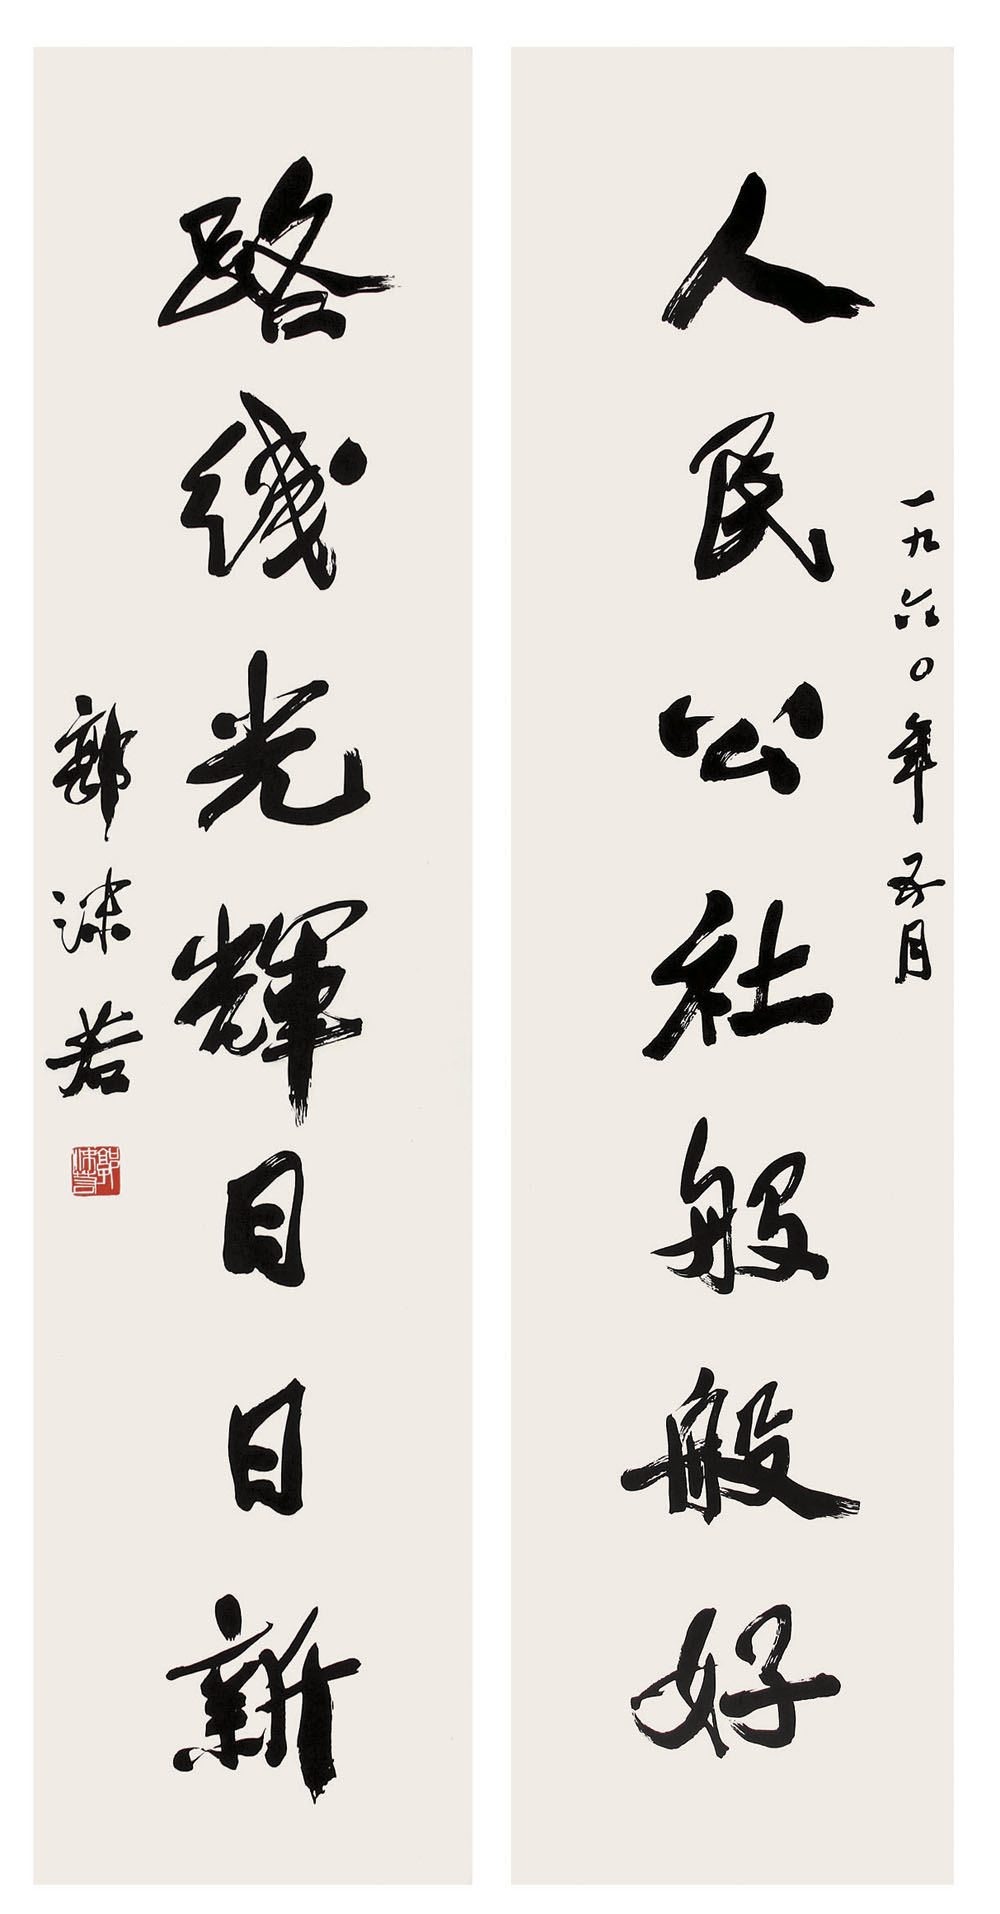 一九六〇年五月
人民公社般般好
路线光辉日日新
郭沫若
郭沫若